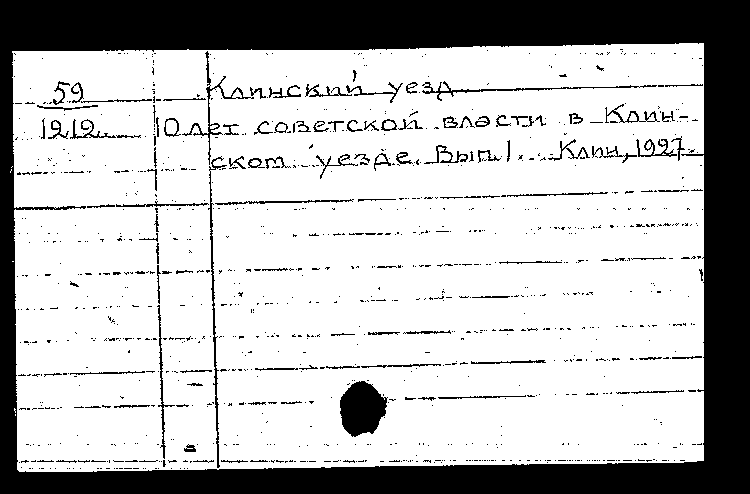 59 Клинский уезд
1212. 10 лет советской власти в Клин-
ском уезде. Вып. 1. Клин, 1927.